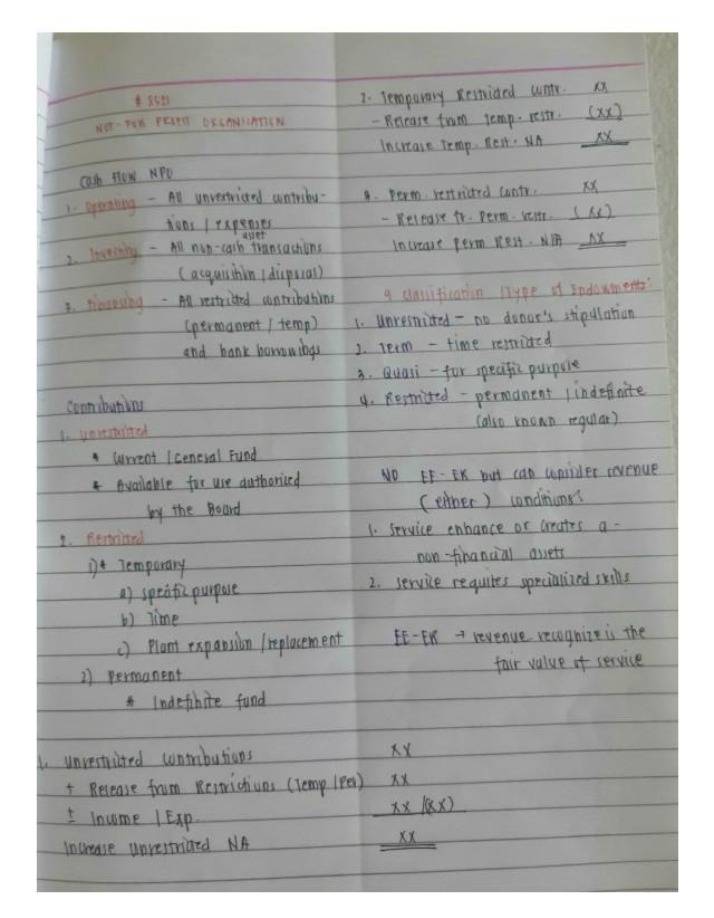 # 8591
NOT-FOR PROFIT ORGANIZATION
Cash Flow NPO
1. Operating - All unrestricted contribu-
tions / expenses
asset
2. Investing - All non-cash transactions
(acquisition / disposal)
3. Financing - All restricted contributions
(permanent / temp)
and bank borrowings
Contributions
1. Unrestricted
* Current / General Fund
* Available for use authorized
by the Board
2. Restricted
1) * Temporary
a) specific purpose
b) Time
c) Plant expansion / replacement
2) Permanent
* Indefinite fund
1. Unrestricted contributions XX
+ Release from Restrictions (Temp / Per) XX
± Income / Exp. XX / (XX)
Increase Unrestricted NA XX
2. Temporary Restricted Contr. XX
- Release from Temp. restr. (XX)
Increase Temp. Rest. NA XX
Perm. restricted Contr. XX
- Release fr. Perm. restr. (XX)
Increase Perm Rest. N/A XX
4 Classification / Type of Endowments:
1. Unrestricted - no donor's stipulation
2. Term - time restricted
3. Quasi - for specific purpose
4. Restricted - permanent / indefinite
(also known regular)
NO EE-ER but can consider revenue
(either) conditions:
1. Service enhance or creates a -
non-financial assets
2. Service requires specialized skills
EE-ER → revenue recognize is the
fair value of service